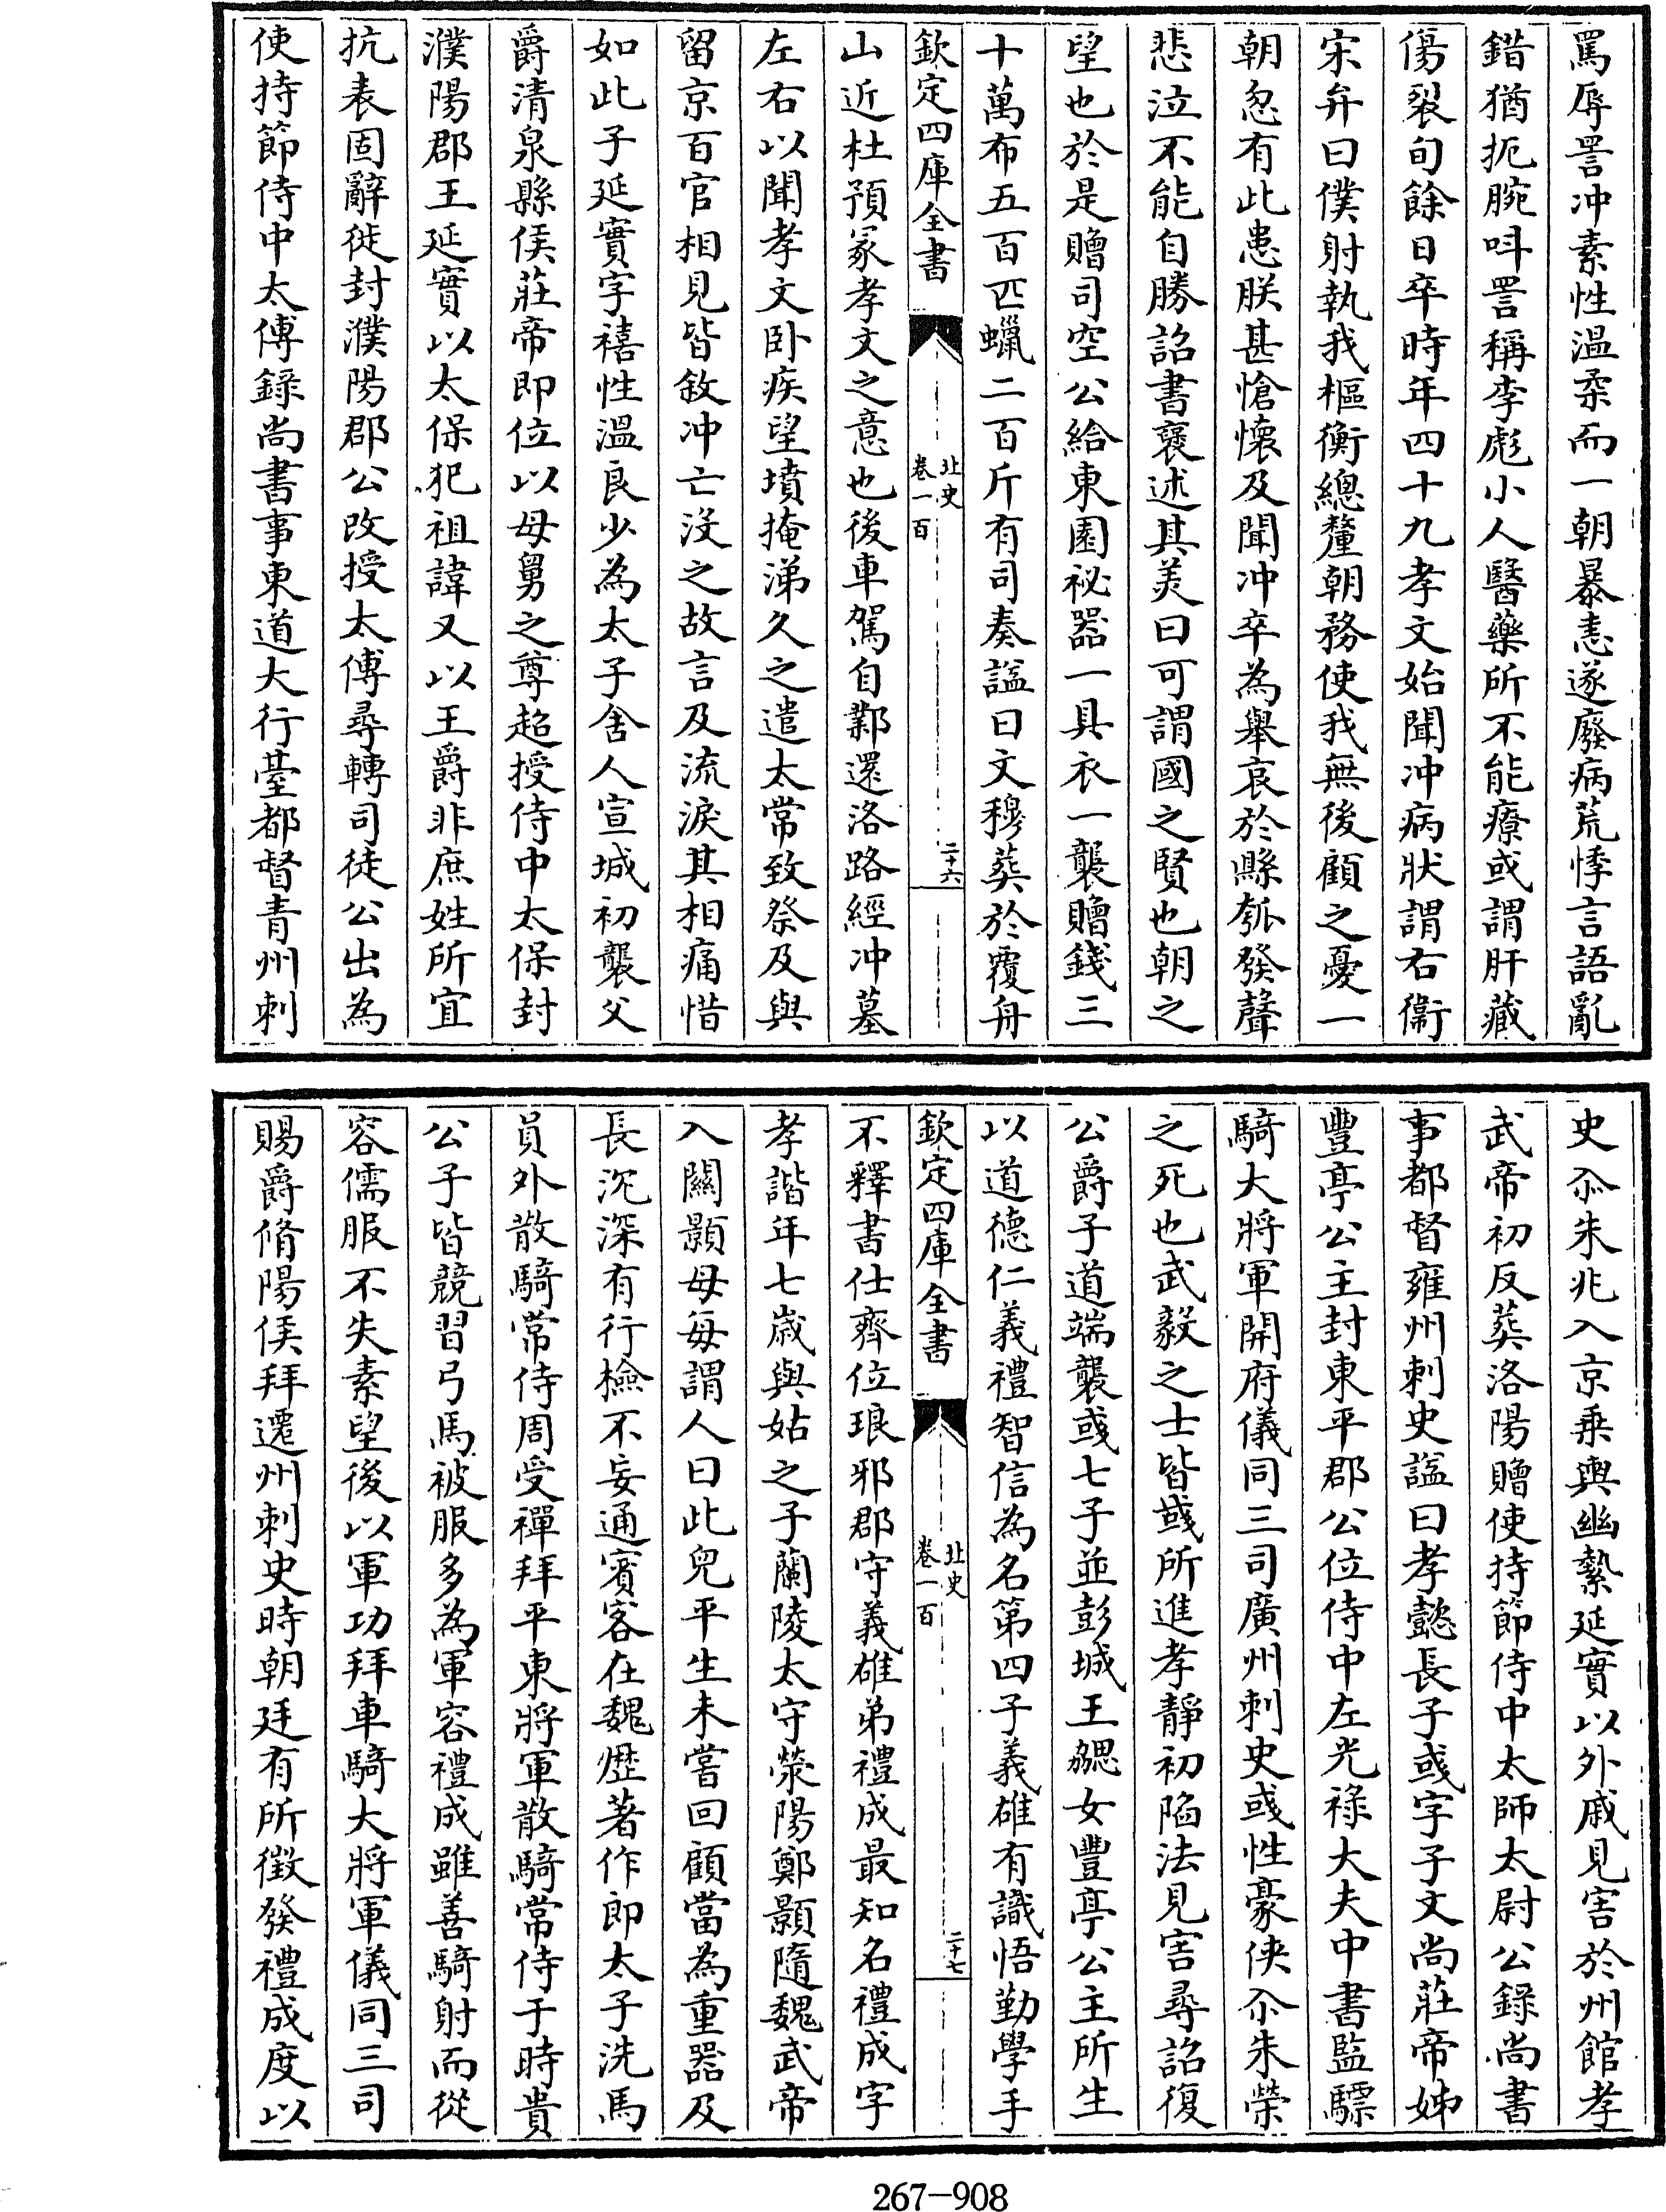 罵辱詈冲素性溫柔而一朝暴恚遂廢病荒悸言語亂
錯猶扼腕呌詈稱李彪小人醫藥所不能療或謂肝藏
傷裂旬餘日卒時年四十九孝文始聞冲病狀謂右衞
宋弁曰僕射執我樞衡總釐朝務使我無後顧之憂一
朝忽有此患朕甚愴懷及聞冲卒為舉哀於縣瓠發聲
悲泣不能自勝詔書襃述其美曰可謂國之賢也朝之
望也於是贈司空公給東園祕器一具衣一襲贈錢三
十萬布五百匹蠟二百斤有司奏諡曰文穆葬於覆舟
欽定四庫全書
北史
卷一百
二十六
山近杜預冢孝文之意也後車駕自鄴還洛路經冲墓
左右以聞孝文卧疾望墳掩涕久之遣太常致祭及與
留京百官相見皆敘冲亡沒之故言及流淚其相痛惜
如此子延實字禧性溫良少為太子舍人宣城初襲父
爵清泉縣侯莊帝即位以母舅之尊超授侍中太保封
濮陽郡王延實以太保犯祖諱又以王爵非庶姓所宜
抗表固辭徙封濮陽郡公改授太傅尋轉司徒公出為
使持節侍中太傅錄尚書事東道大行臺都督青州刺
史尒朱兆入京乗輿幽縶延實以外戚見害於州館孝
武帝初反葬洛陽贈使持節侍中太師太尉公錄尚書
事都督雍州刺史諡曰孝懿長子彧字子文尚莊帝姊
豐亭公主封東平郡公位侍中左光祿大夫中書監驃
騎大將軍開府儀同三司廣州刺史彧性豪俠尒朱榮
之死也武毅之士皆彧所進孝靜初陷法見害尋詔復
公爵子道端襲彧七子並彭城王勰女豐亭公主所生
以道德仁義禮智信為名第四子義雄有識悟勤學手
欽定四庫全書
北史
卷一百
二十七
不釋書仕齊位琅邪郡守義雄弟禮成最知名禮成字
孝諧年七歲與姑之子蘭陵太守滎陽鄭顥隨魏武帝
入關顥母每謂人曰此兒平生未嘗回顧當為重器及
長沉深有行檢不妄通賓客在魏歷著作郎太子洗馬
員外散騎常侍周受禪拜平東將軍散騎常侍于時貴
公子皆競習弓馬被服多為軍容禮成雖善騎射而從
容儒服不失素望後以軍功拜車騎大將軍儀同三司
賜爵脩陽侯拜遷州刺史時朝廷有所徵發禮成度以
267-908